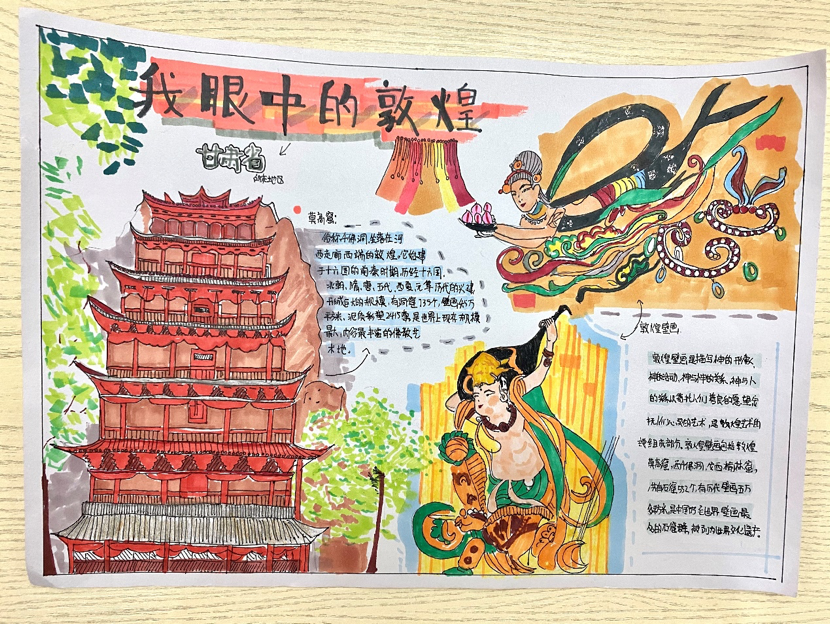 我眼中的敦煌
甘肃省
莫高窟:
俗称千佛洞,坐落在河
西走廊西端的敦煌。它始建
于十六国的前秦时期,历经十六国、
北朝、隋、唐、五代、西夏、元等历代的兴建
形成巨大的规模,有洞窟735个,壁画4.5万
平方米、泥质彩塑2415尊,是世界上现存规模
最大、内容最丰富的佛教艺
术地。
敦煌壁画
敦煌壁画是描写神的形象、
神的活动、神与神的关系、神与人
的关系以寄托人们善良的愿望,安
抚人们心灵的艺术
敦煌壁画包括敦煌
莫高窟、西千佛洞、安西榆林窟,
共有石窟552个,有历代壁画五万
多平方米,是中国也是世界壁画最
多的石窟群,被列为世界文化遗产。